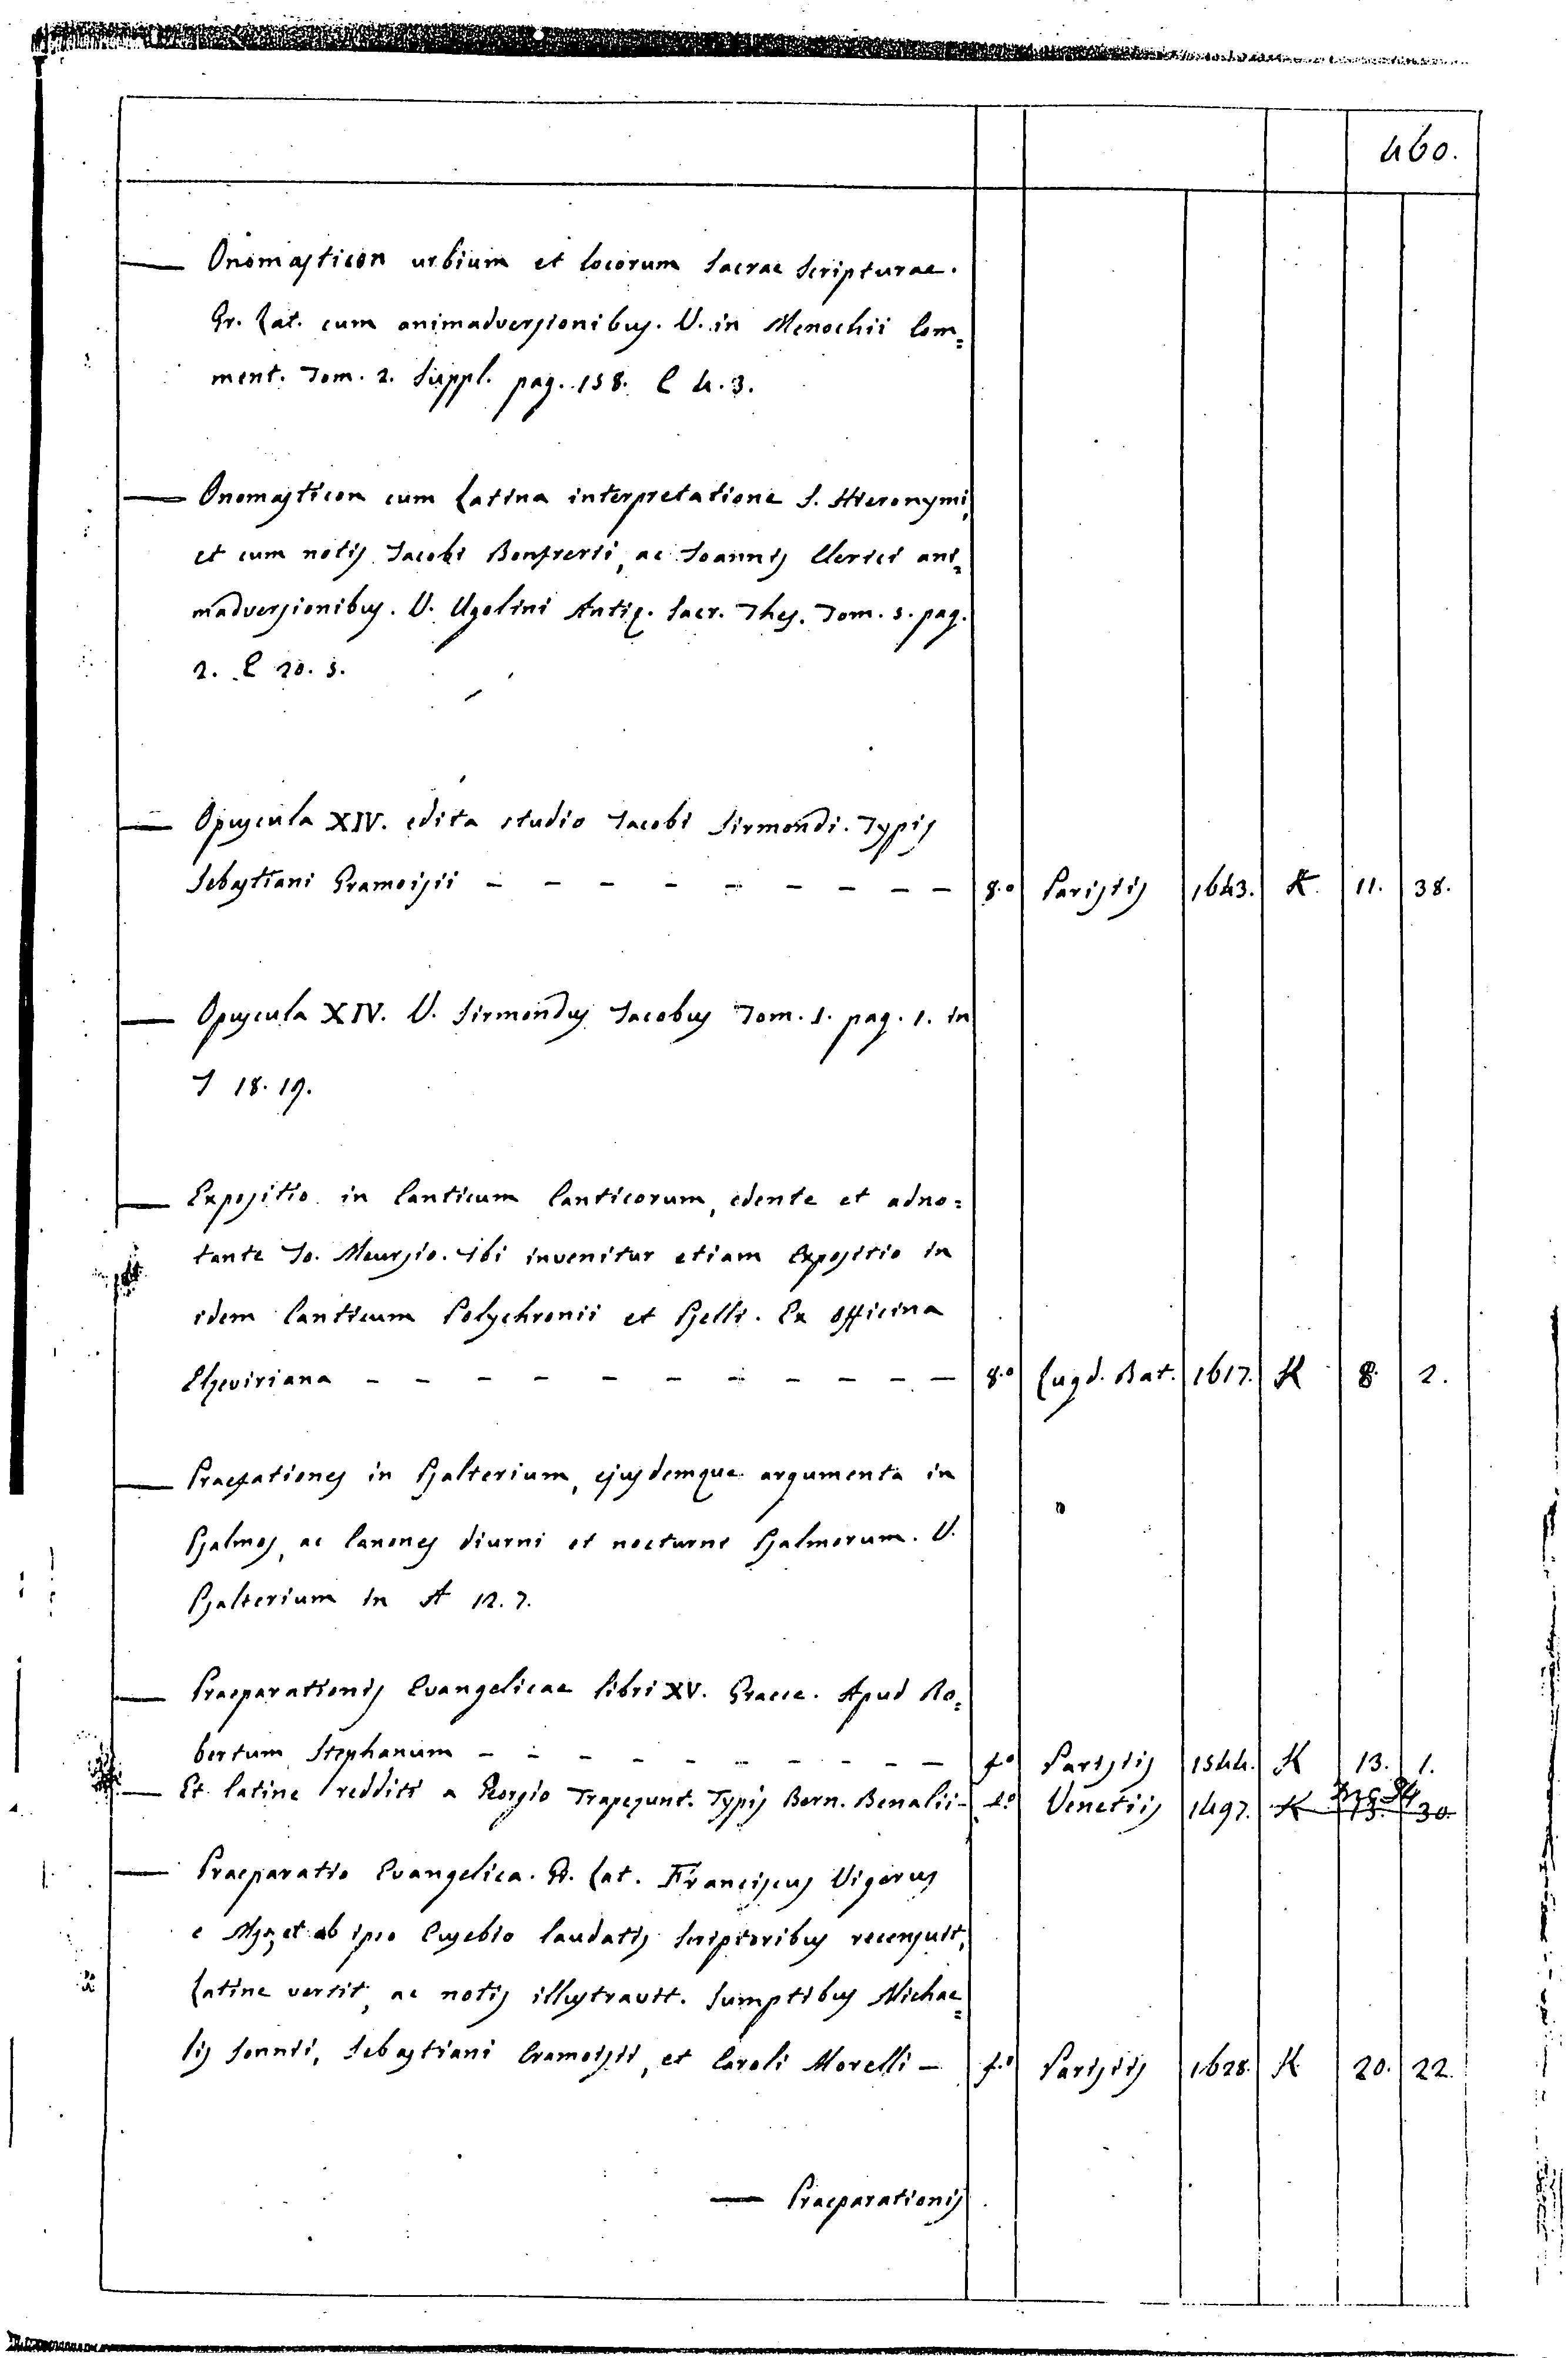 460.
— Onomasticon urbium et locorum Sacrae Scripturae.
Gr. Lat. cum animadversionibus. V. in Menochii Com=
ment. Tom. 2. Suppl. pag. 158. C 4. 3.
— Onomasticon cum Latina interpretatione S. Hieronymi,
et cum notis Jacobi Bonfrerii, ac Joannis Clerici ani=
madversionibus. V. Ugolini Antiq. Sacr. Thes. Tom. 5. pag.
2. C 20. 5.
— Opuscula XIV. edita studio Jacobi Sirmondi. Typis
Sebastiani Gramoisii – – – – – – – – – 8.o Parisiis 1643. K. 11. 38.
— Opuscula XIV. V. Sirmondus Jacobus Tom. 1. pag. 1. in
I 18. 19.
— Expositio in Canticum Canticorum, edente et adno=
tante Jo. Meursio. Ibi invenitur etiam Expositio in
idem Canticum Polychronii et Pselli. Ex Officina
Elzeviriana – – – – – – – – – – – 8.o Lugd. Bat. 1617. K 8. 2.
— Praefationes in Psalterium, ejusdemque argumenta in
Psalmos, ac Canones diurni et nocturni Psalmorum. V.
Psalterium in A 12. 7.
— Praeparationis Evangelicae libri XV. Graece. Apud Ro=
bertum Stephanum – – – – – – – – – f.o Parisiis 1544. K 13. 1.
— Et latine redditi a Georgio Trapezunt. Typis Bern. Benalii – f.o Venetiis 1497. K 13. 30.
— Praeparatio Evangelica. Gr. Lat. Franciscus Vigerus
e Mss, et ab ipso Eusebio laudatis Scriptoribus recensuit,
Latine vertit, ac notis illustravit. Sumptibus Michae=
lis Sonnii, Sebastiani Cramoisii, et Caroli Morelli – f.o Parisiis 1628. K 20. 22.
— Praeparationis